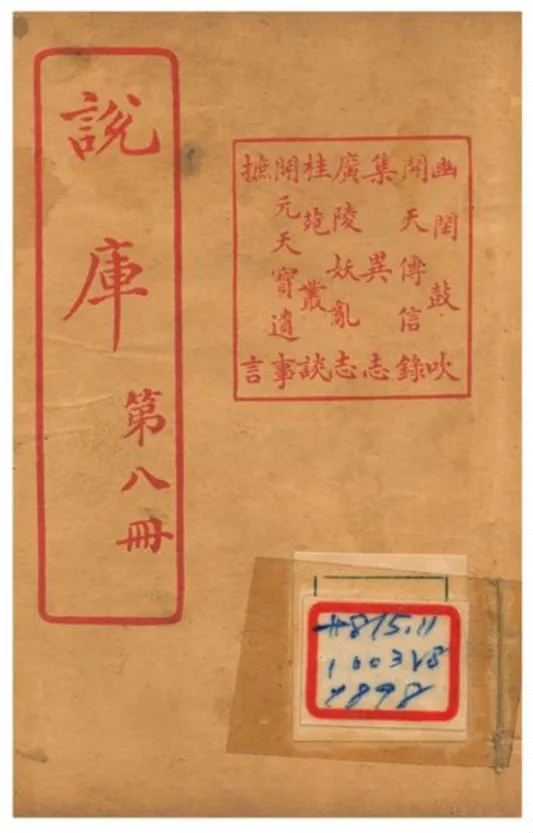 說庫
第八冊
幽閒鼓吹
開天傳信錄
集異志
廣陵妖亂志
桂苑叢談
開元天寶遺事
摭言